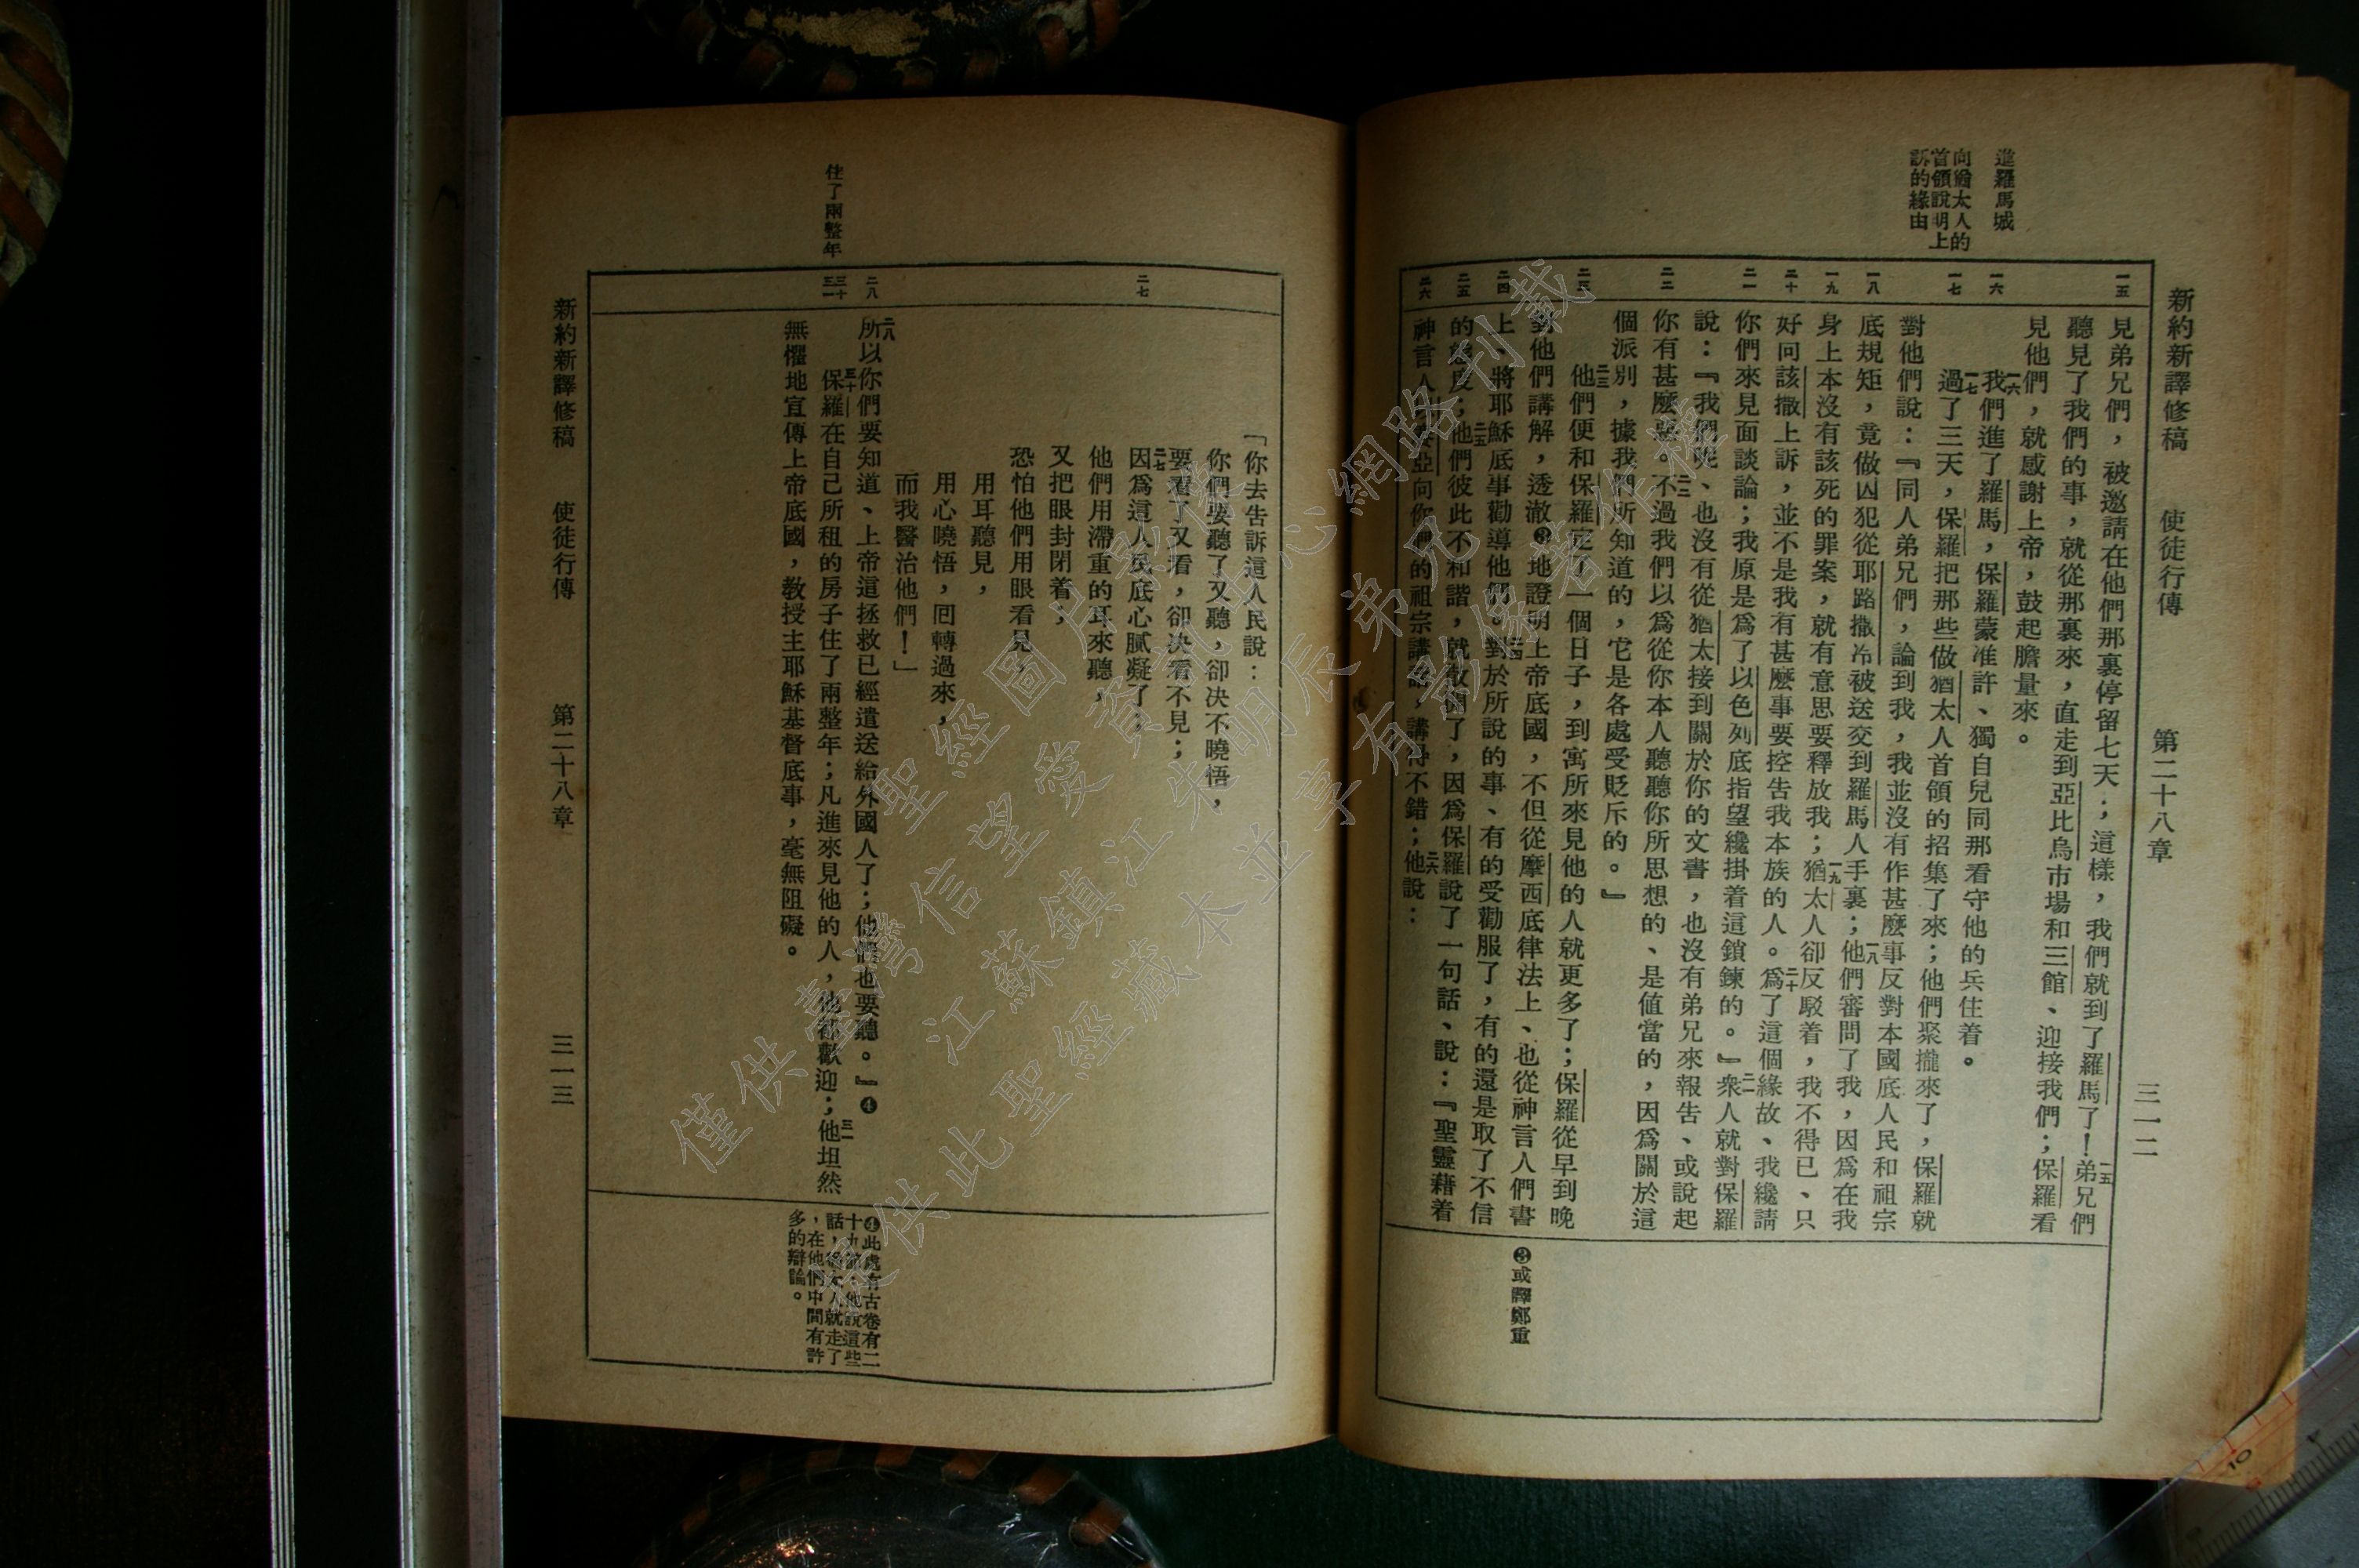 新約新譯修稿　使徒行傳　第二十八章　三一二
進羅馬城
向猶太人的
首領說明上
訴的緣由
一五
一六
一七
一八
一九
二十
二一
二二
二三
二四
二五
二六
見弟兄們，被邀請在他們那裏停留七天；這樣，我們就到了羅馬了！一五弟兄們
聽見了我們的事，就從那裏來，直走到亞比烏市場和三館、迎接我們；保羅看
見他們，就感謝上帝，鼓起膽量來。
一六我們進了羅馬，保羅蒙准許、獨自兒同那看守他的兵住着。
一七過了三天，保羅把那些做猶太人首領的招集了來；他們聚攏來了，保羅就
對他們說：『同人弟兄們，論到我，我並沒有作甚麼事反對本國底人民和祖宗
底規矩，竟做囚犯從耶路撒冷被送交到羅馬人手裏；一八他們審問了我，因爲在我
身上本沒有該死的罪案，就有意思要釋放我；一九猶太人卻反駁着，我不得已、只
好向該撒上訴，並不是我有甚麼事要控告我本族的人。二十爲了這個緣故、我纔請
你們來見面談論；我原是爲了以色列底指望纔掛着這鎖鍊的。』二一衆人就對保羅
說：『我們呢、也沒有從猶太接到關於你的文書，也沒有弟兄來報告、或說起
你有甚麼惡。二二不過我們以爲從你本人聽聽你所思想的、是値當的，因爲關於這
個派別，據我們所知道的，它是各處受貶斥的。』
二三他們便和保羅定了一個日子，到寓所來見他的人就更多了；保羅從早到晚
對他們講解，透澈❸地證明上帝底國，不但從摩西底律法上、也從神言人們書
上、將耶穌底事勸導他們。二四對於所說的事、有的受勸服了，有的還是取了不信
的態度；二五他們彼此不和諧，就散開了，因爲保羅說了一句話、說：『聖靈藉着
神言人以賽亞向你們的祖宗講話，講得不錯；二六他說：
❸或譯鄭重
新約新譯修稿　使徒行傳　第二十八章　三一三
住了兩整年
二七
二八
三十
三一
「你去告訴這人民說：
你們要聽了又聽，卻決不曉悟，
要看了又看，卻決看不見；
二七因爲這人民底心膩凝了，
他們用滯重的耳來聽，
又把眼封閉着；
恐怕他們用眼看見，
用耳聽見，
用心曉悟，回轉過來，
而我醫治他們！」
二八所以你們要知道、上帝這拯救已經遣送給外國人了；他們也要聽。』❹
三十保羅在自己所租的房子住了兩整年；凡進來見他的人，他都歡迎；三一他坦然
無懼地宣傳上帝底國，教授主耶穌基督底事，毫無阻礙。
❹此處有古卷有二
十九節：他說這些
話，猶太人就走了
，在他們中間有許
多的辯論。
僅供臺灣信望愛資訊中心網路刊載
聖經圖片影像
江蘇鎮江朱明辰弟兄
提供此聖經藏本並享有影像著作權
10